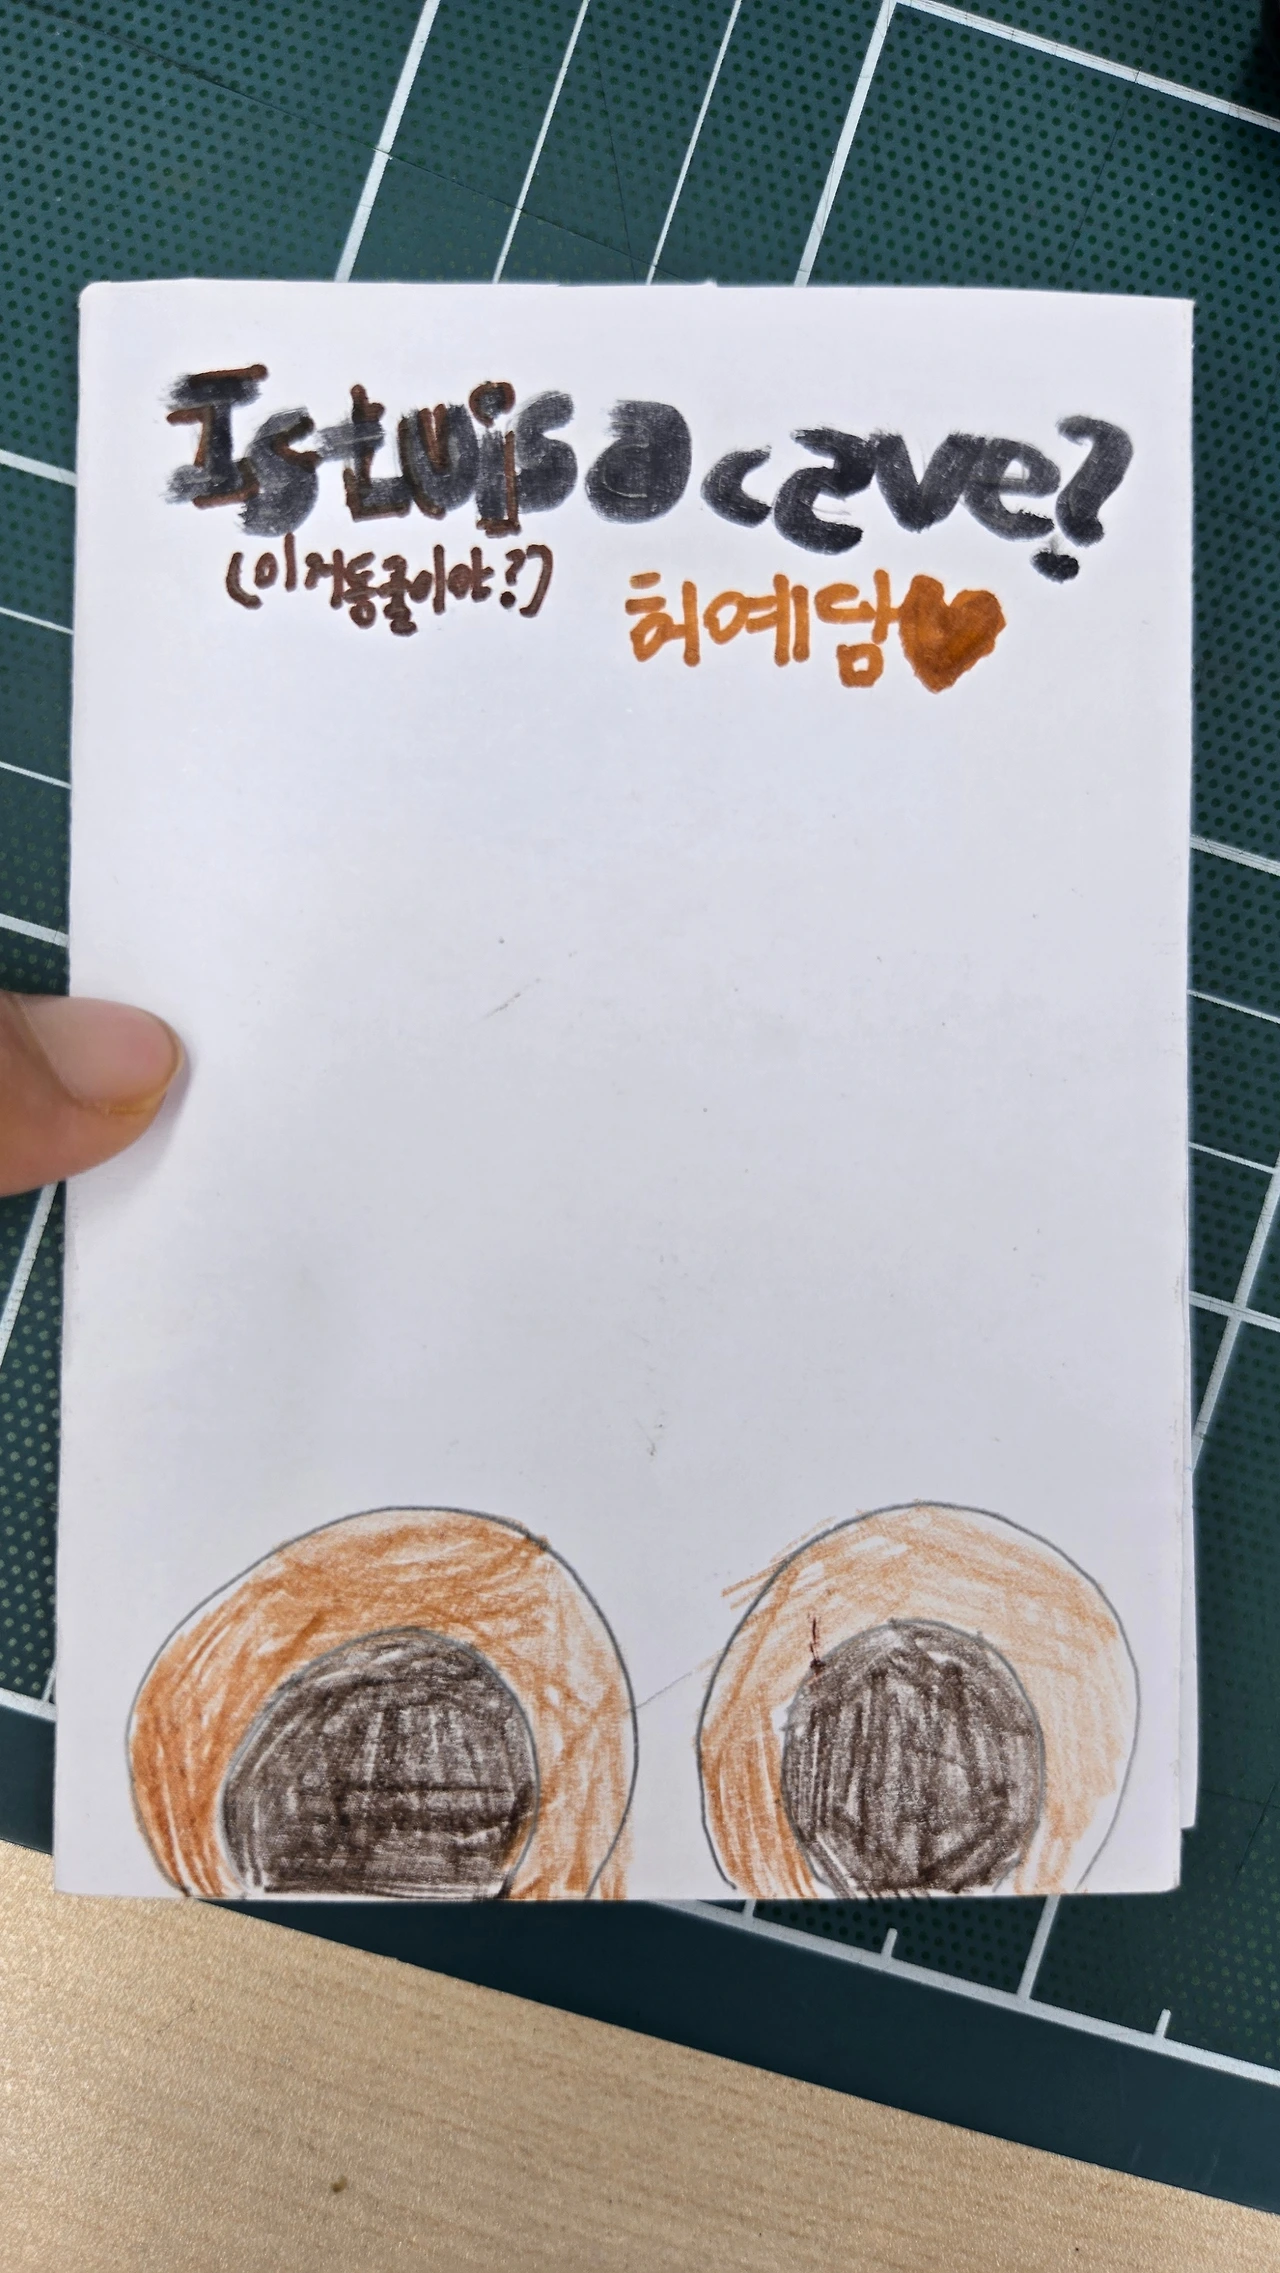 Is tuis a cave?
(이거동굴이야?)
허예담♥